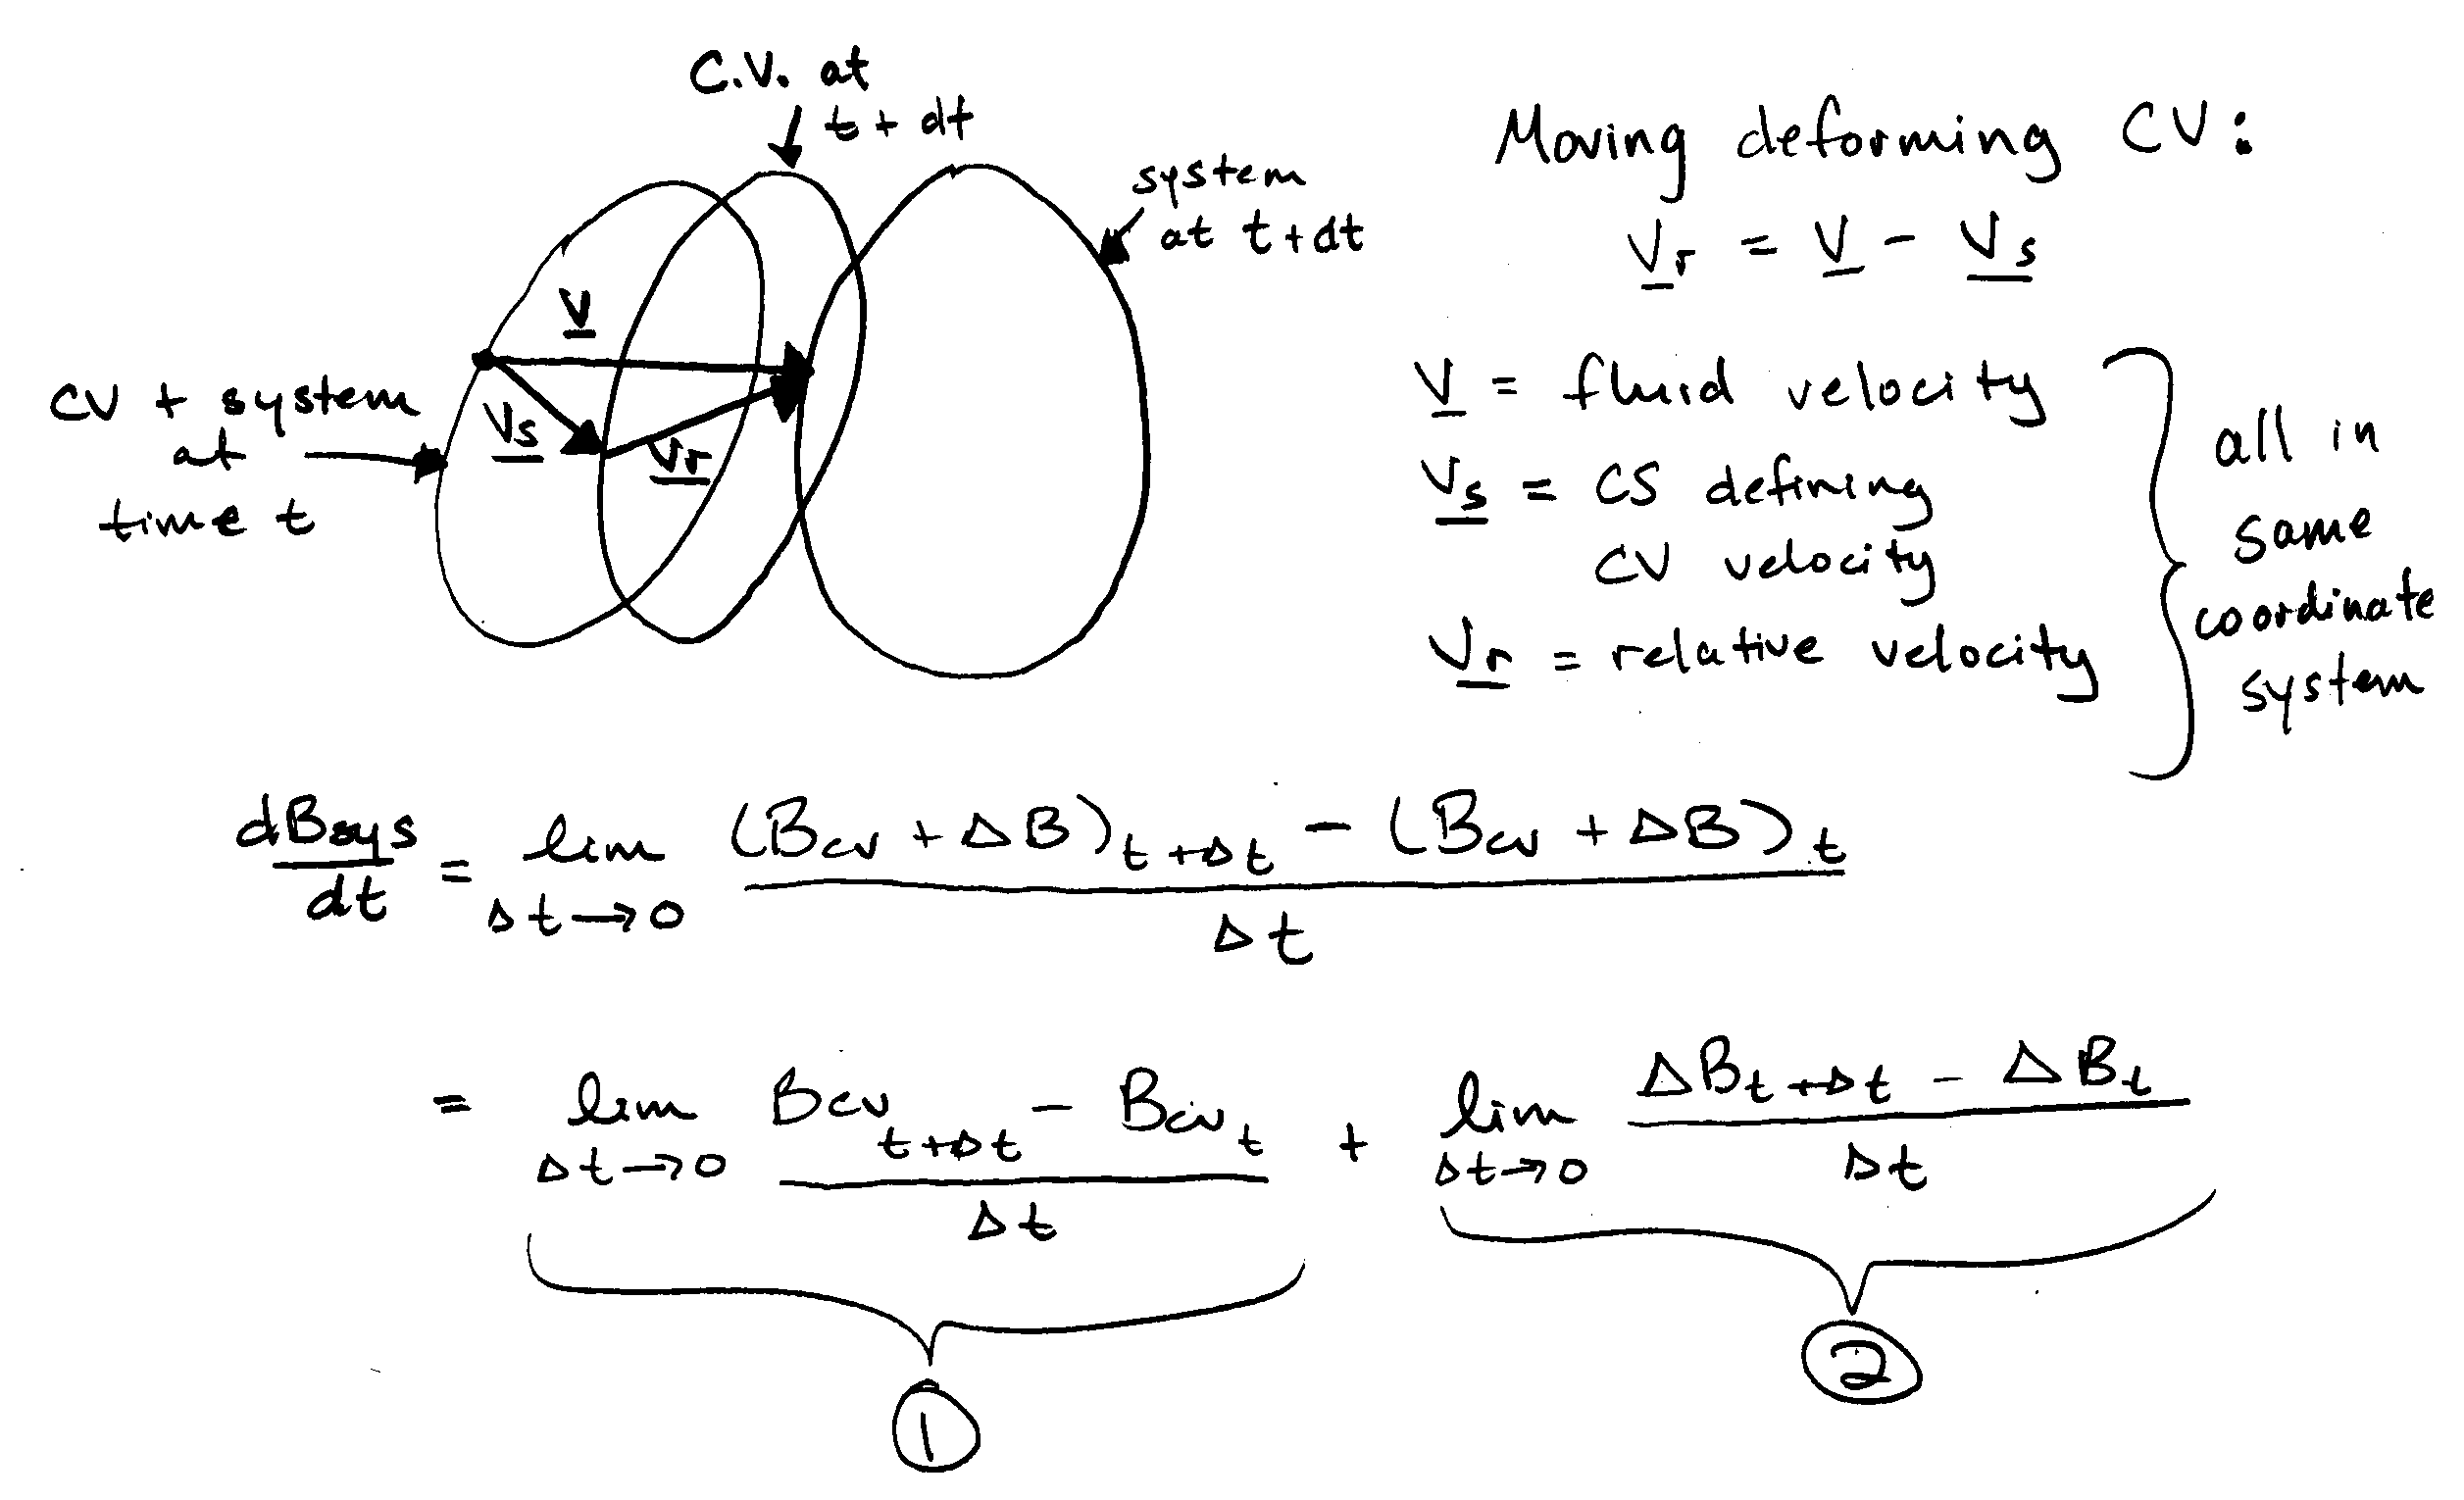 C.V. at
t + dt
system
at t + dt
V
CV + system
at
time t
Vs
Vr
Moving deforming CV:
Vr = V - Vs
V = fluid velocity
Vs = CS defining
CV velocity
Vr = relative velocity
all in
same
coordinate
system
dBsys/dt = lim Δt→0 ((Bcv + ΔB)t+Δt - (Bcv + ΔB)t)/Δt
= lim Δt→0 (Bcv t+Δt - Bcv t)/Δt + lim Δt→0 (ΔBt+Δt - ΔBt)/Δt
1
2